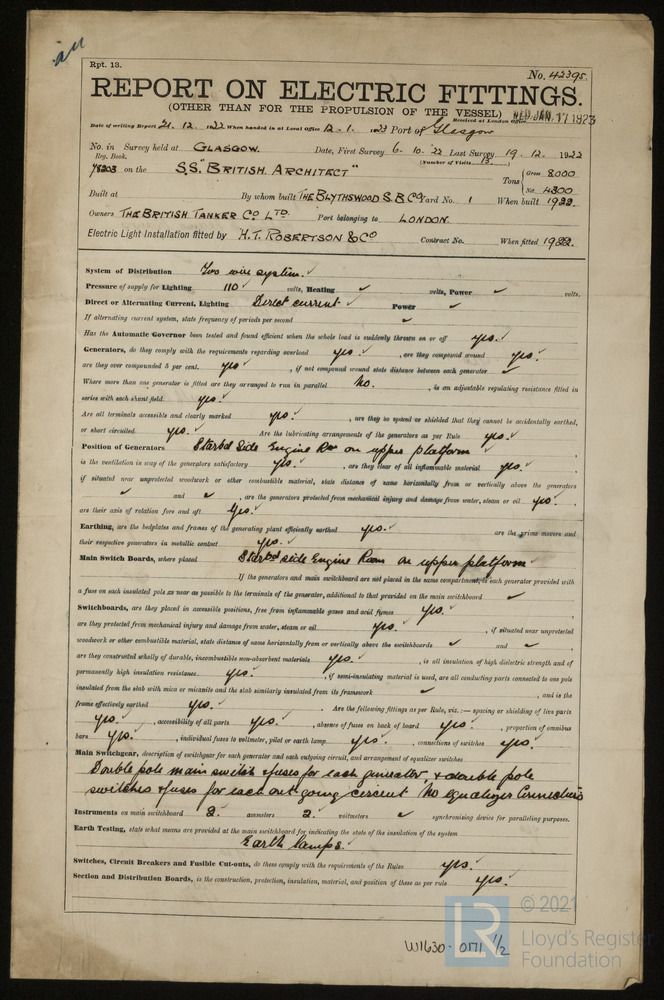 an
Rpt. 13.
No. 42395.
REPORT ON ELECTRIC FITTINGS.
(OTHER THAN FOR THE PROPULSION OF THE VESSEL)
Received at London Office WED. JAN. 17 1923
Date of writing Report 21. 12. 1922 When handed in at Local Office 12. 1. 1923 Port of Glasgow
No. in Survey held at GLASGOW. Date, First Survey 6. 10. 22 Last Survey 19. 12. 1922
Reg. Book. (Number of Visits 13.)
78203 on the S.S. "BRITISH ARCHITECT" Tons { Gross 8000
Net 4800
Built at By whom built THE BLYTHSWOOD S.B. Co. Yard No. 1 When built 1922.
Owners THE BRITISH TANKER Co LTD. Port belonging to LONDON.
Electric Light Installation fitted by H.T. ROBERTSON & Co Contract No. When fitted 1922.
System of Distribution Two wire system.
Pressure of supply for Lighting 110 volts, Heating ✓ volts, Power ✓ volts.
Direct or Alternating Current, Lighting Direct current ✓ Power ✓
If alternating current system, state frequency of periods per second ✓
Has the Automatic Governor been tested and found efficient when the whole load is suddenly thrown on or off yes.
Generators, do they comply with the requirements regarding overload yes. , are they compound wound yes.
are they over compounded 5 per cent. yes , if not compound wound state distance between each generator ✓
Where more than one generator is fitted are they arranged to run in parallel No. , is an adjustable regulating resistance fitted in
series with each shunt field. yes.
Are all terminals accessible and clearly marked yes. , are they so spaced or shielded that they cannot be accidentally earthed,
or short circuited. yes. Are the lubricating arrangements of the generators as per Rule yes.
Position of Generators Starbd Side Engine Rm on upper platform
is the ventilation in way of the generators satisfactory yes. , are they clear of all inflammable material yes.
if situated near unprotected woodwork or other combustible material, state distance of same horizontally from or vertically above the generators
✓ and ✓ , are the generators protected from mechanical injury and damage from water, steam or oil yes.
are their axis of rotation fore and aft yes.
Earthing, are the bedplates and frames of the generating plant efficiently earthed yes. are the prime movers and
their respective generators in metallic contact yes.
Main Switch Boards, where placed Starbd side Engine Room on upper platform
If the generators and main switchboard are not placed in the same compartment, is each generator provided with
a fuse on each insulated pole as near as possible to the terminals of the generator, additional to that provided on the main switchboard ✓
Switchboards, are they placed in accessible positions, free from inflammable gases and acid fumes yes.
are they protected from mechanical injury and damage from water, steam or oil yes. , if situated near unprotected
woodwork or other combustible material, state distance of same horizontally from or vertically above the switchboards ✓ and ✓
are they constructed wholly of durable, incombustible non-absorbent materials yes. , is all insulation of high dielectric strength and of
permanently high insulation resistance. yes. , if semi-insulating material is used, are all conducting parts connected to one pole
insulated from the slab with mica or micanite and the slab similarly insulated from its framework ✓ , and is the
frame effectively earthed yes. Are the following fittings as per Rule, viz. :— spacing or shielding of live parts
yes. , accessibility of all parts yes. , absence of fuses on back of board yes. , proportion of omnibus
bars yes. , individual fuses to voltmeter, pilot or earth lamp yes. , connections of switches yes.
Main Switchgear, description of switchgear for each generator and each outgoing circuit, and arrangement of equalizer switches
Double pole main switch & fuses for each generator, & double pole
switches & fuses for each out going circuit No equalizer Connections
Instruments on main switchboard 2. ammeters 2. voltmeters ✓ synchronising device for paralleling purposes.
Earth Testing, state what means are provided at the main switchboard for indicating the state of the insulation of the system
Earth lamps.
Switches, Circuit Breakers and Fusible Cut-outs, do these comply with the requirements of the Rules yes.
Section and Distribution Boards, is the construction, protection, insulation, material, and position of these as per rule yes.
W1630-0171 1/2
LR
© 2021
Lloyd's Register
Foundation